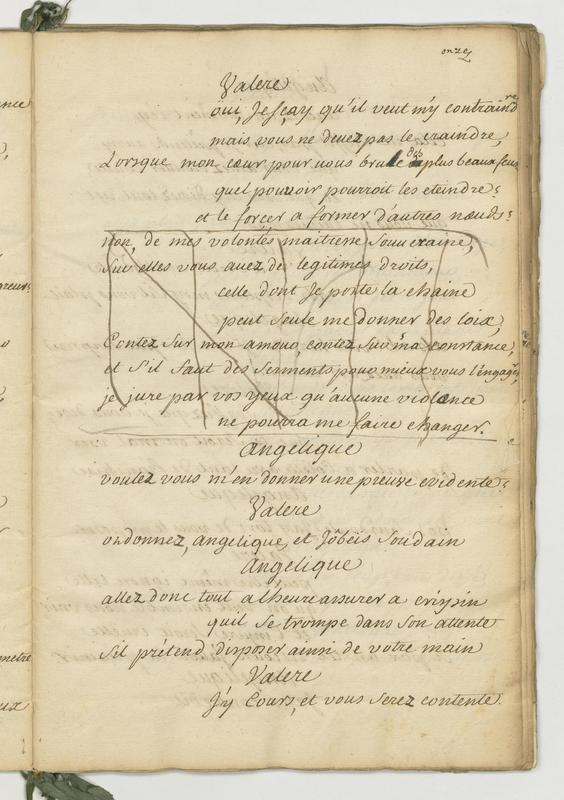 onze
Valere
oüi, Je sçay qu'il veut m'y contraindre
mais vous ne devez pas le craindre,
Lorsque mon cœur pour vous brule des plus beaux feux
quel pouvoir pourroit les eteindre?
et le forcer a former d'autres nœuds?
non, de mes volontés maitresse souveraine,
sur elles vous avez de legitimes droits,
celle dont Je porte la chaine
peut seule me donner des loix,
Contez sur mon amour, contez sur ma constance,
et s'il faut des serments pour mieux vous l'engager,
je jure par vos yeux qu'aucune violence
ne pourra me faire changer.
angelique
voulez vous m'en donner une preuve evidente?
Valere
ordonnez, angelique, et J'obëis soudain
angelique
allez donc tout a l'heure assurer a crispin
quil se trompe dans son attente
s'il prétend disposer ainsi de votre main
Valere
J'y Cours, et vous serez contente.